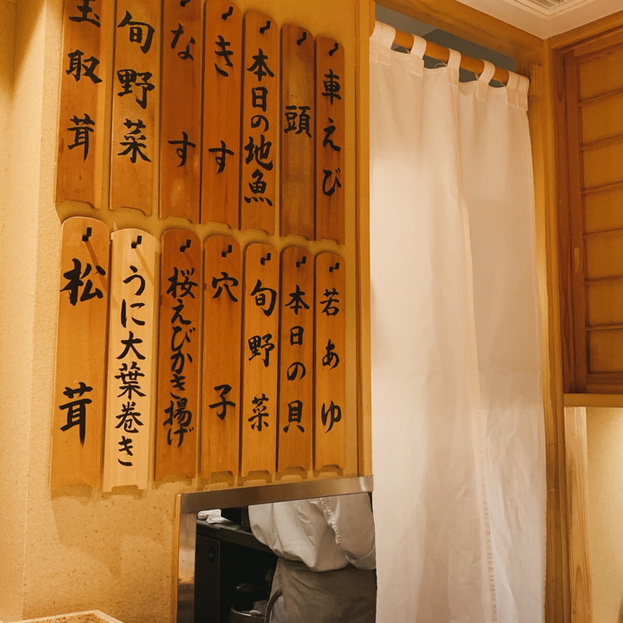 車えび
頭
本日の地魚
きす
なす
旬野菜
玉取茸
若あゆ
本日の貝
旬野菜
穴子
桜えびかき揚げ
うに大葉巻き
松茸